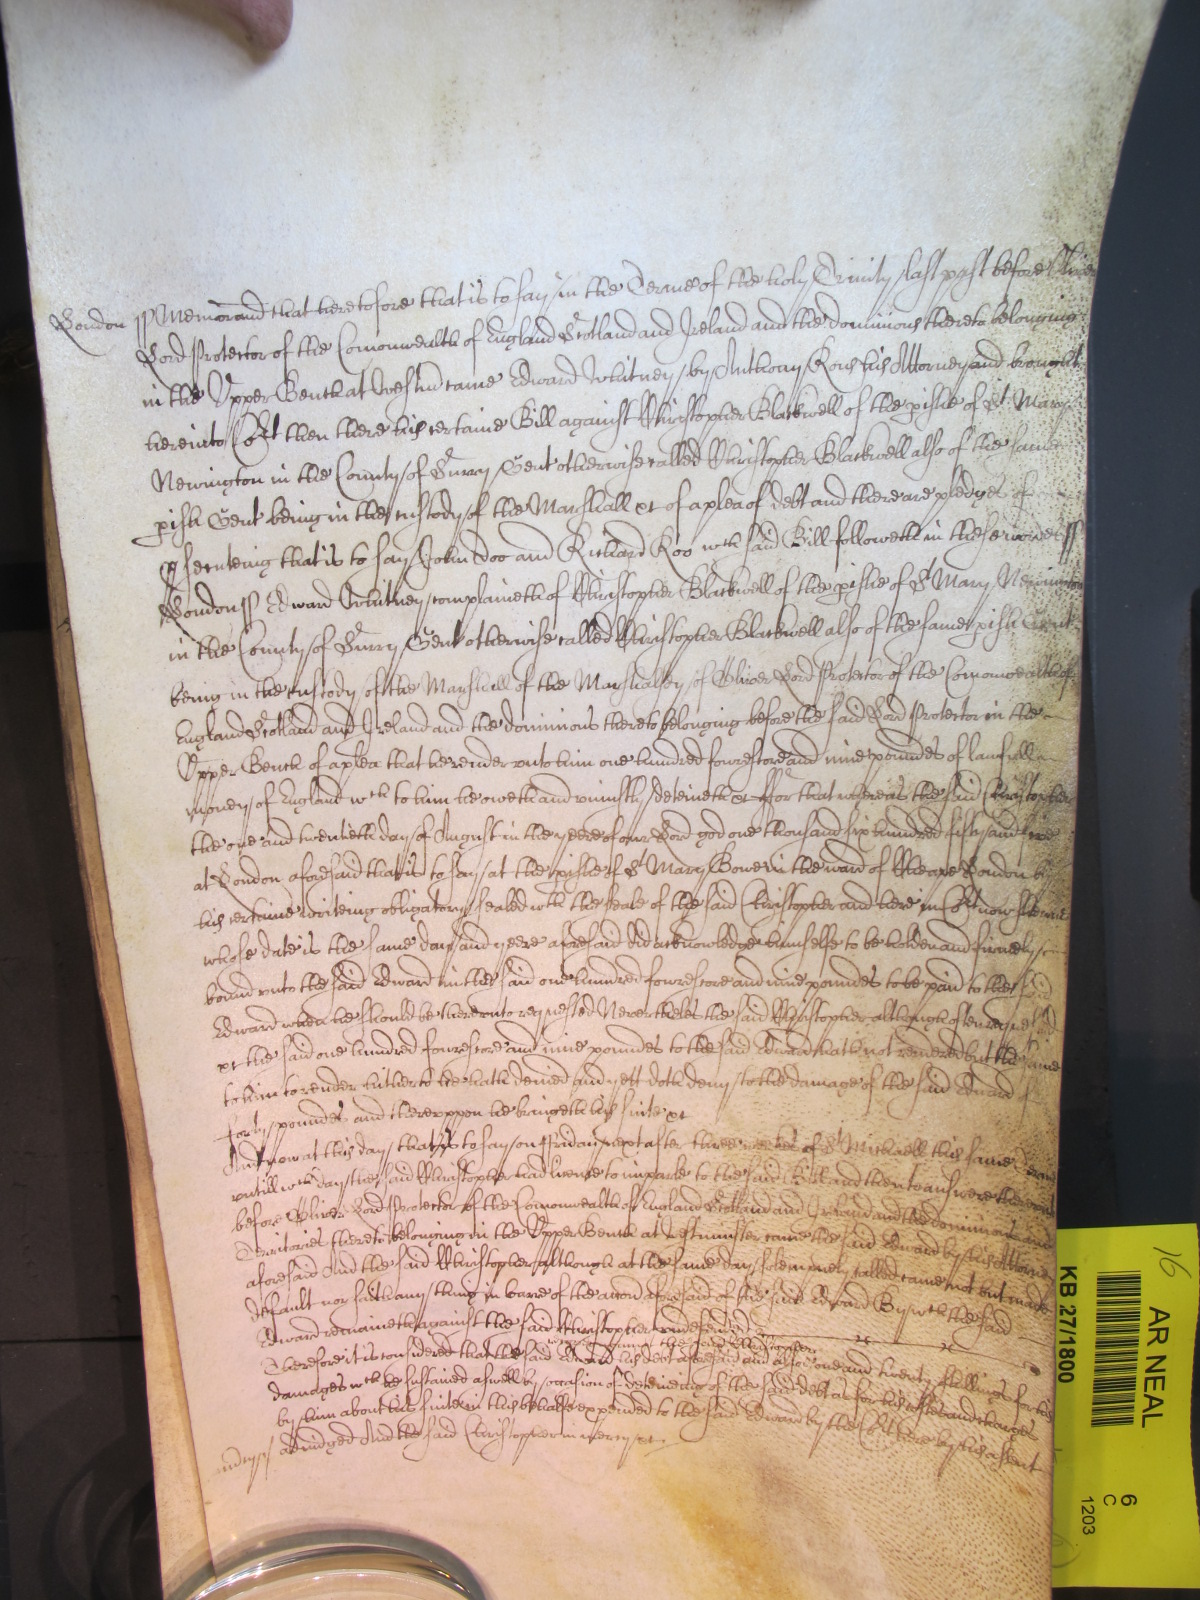 London ss Memorand that heretofore that is to say in the Terme of the holy Trinity last past before Oliver
Lord Protector of the Comonwealth of England Scotland and Ireland and the dominions thereto belonging
in the Upper Bench at Westm came Edward Whitney by Anthony Rous his Attorney and brought
here into Cort then there his certaine Bill against Christopher Blackwell of the pishe of St Mary
Newington in the County of Surry Gent otherwise called Christopher Blackwell also of the same
pish Gent being in the custody of the Marshall &c of a plea of debt and there are pledges of
psecuteing that is to say John Doo and Richard Roo wch said Bill followeth in these wordes ss
London ss Edward Whitney complaineth of Christopher Blackwell of the pishe of St Mary Newington
in the County of Surry Gent otherwise called Christopher Blackwell also of the same pish Gent
being in the custody of the Marshall of the Marshalsey of Oliver Lord Protector of the Comonwealth of
England Scotland and Ireland and the dominions thereto belonging before the said Lord Protector in the
Upper Bench of a plea that he render unto him one hundred fowrescore and nine pounds of lawfull
money of England wch to him he oweth and uniustly deteineth &c ffor that whereas the said Christopher
the one and twentieth day of August in the yeere of our Lord god one thousand six hundred fifty and five
at London aforesaid that is to say at the pishe of St Mary Bowe in the ward of Cheape London by
his certaine writeing obligatory sealed wth the seale of the said Christopher and here in Cort now shewne
whose date is the same day and yeere aforesaid did acknowledge himselfe to be holden and firmely
bound unto the said Edward in the said one hundred fowrescore and nine pounds to be paid to the said
Edward when he should be thereunto requested Neverthelesse the said Christopher although often requested
&c the said one hundred fowrescore and nine pounds to the said Edward hath not rendered but the same
to him to render hitherto he hath denied and yett doth deny to the damage of the said Edward of
forty pounds and thereuppon he bringeth his suite &c
And now at this day that is to say on Friday next after three weekes of St Michaell this same Terme
untill wch day the said Christopher had licence to imparle to the said Bill and then to answere thereunto
before Oliver Lord Protector of the Comonwealth of England Scotland and Ireland and the dominions and
Territories thereto belonging in the Upper Bench at Westminster came the said Edward by his Attorney
aforesaid And the said Christopher although at the same day solemnely called came not but made
default nor saith any thing in barre of the accon aforesaid of the said Edward By wch the said
Edward remaineth against the said Christopher undefended
Therefore it is considered that the said Edward recover against the said Christopher his debt aforesaid and also one and twenty shillings for his
damages wch he sustained aswell by occasion of deteineing of the said debt as for his costes and charges
by him about his suite in this behalfe expended to the said Edward by the Cort here by his assent
adiudged And the said Christopher in mercy &c
KB 27/1800
AR NEAL
6
C
1203
16